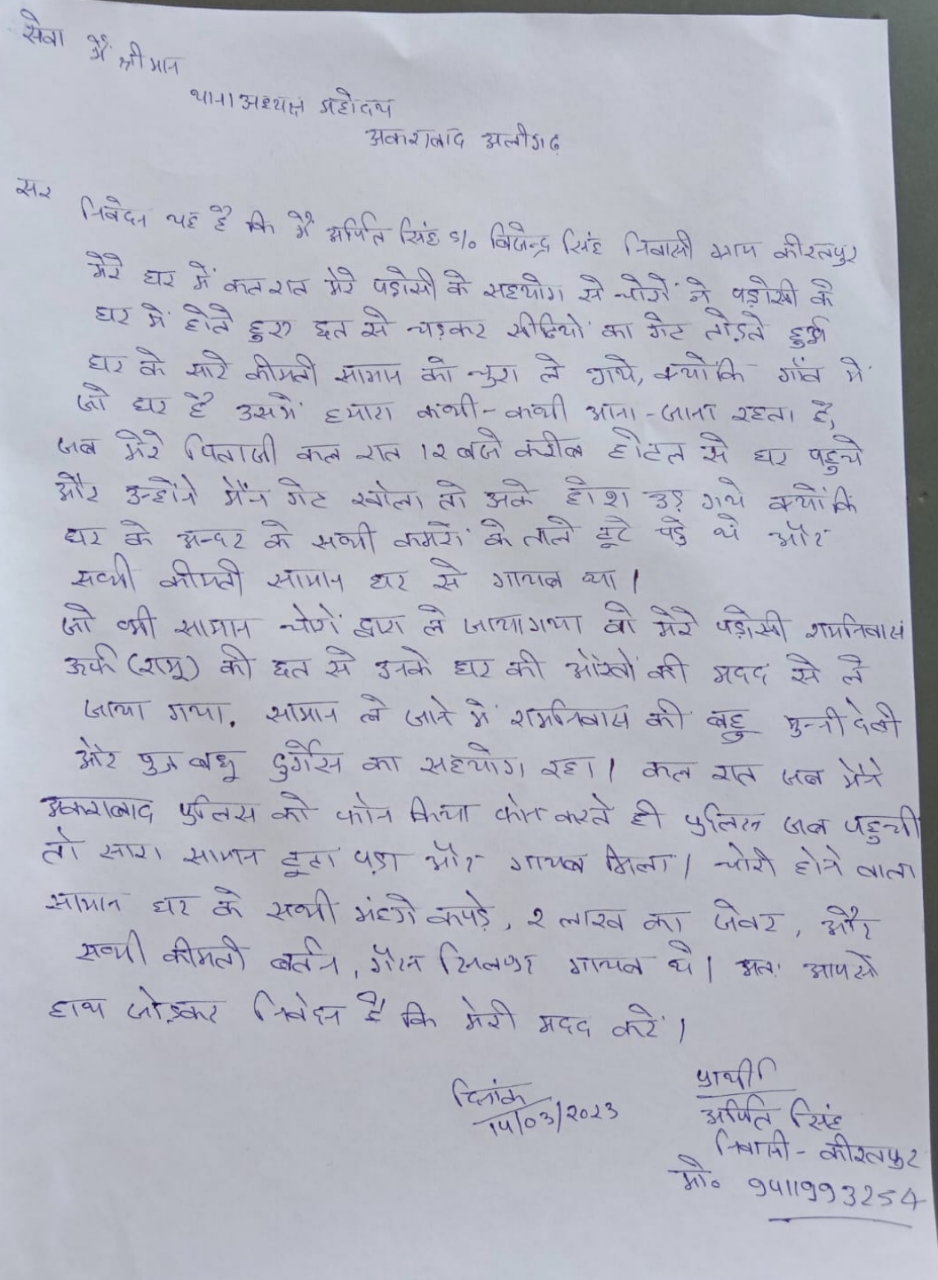 सेवा में श्रीमान
थाना अध्यक्ष महोदय
अकराबाद अलीगढ़
सर
निवेदन यह है कि मैं अर्पित सिंह S/o विजेन्द्र सिंह निवासी ग्राम कीरतपुर
मेरे घर में कल रात मेरे पड़ोसी के सहयोग से चोरों ने पड़ोसी के
घर में होते हुए छत से चढ़कर सीढियों का गेट तोड़ते हुऐ
घर के सारे कीमती सामान को चुरा ले गये, क्योंकि गाँव में
जो घर है उसमें हमारा कभी-कभी आना-जाना रहता है,
जब मेरे पिताजी कल रात 12 बजे करीब होटल से घर पहुचे
और उन्होंने मैन गेट खोला तो उनके होश उड़ गये क्योंकि
घर के अन्दर के सभी कमरों के ताले टूटे पड़े थे और
सभी कीमती सामान घर से गायब था।
जो भी सामान चोरों द्वारा ले जाया गया वो मेरे पड़ोसी रामनिवास
ऊर्फ (रामू) की छत से उनके घर की औरतों की मदद से ले
जाया गया, सामान ले जाने में रामनिवास की बहु मुन्नी देवी
और पुत्र बधू दुर्गेस का सहयोग रहा। कल रात जब मैंने
अकराबाद पुलिस को फोन किया फोन करते ही पुलिस जब पहुची
तो सारा सामान टूटा पड़ा और गायब मिला। चोरी होने वाला
सामान घर के सभी मंहगे कपड़े, 2 लाख का जेवर, और
सभी कीमती बर्तन, गैस सिलेण्डर गायब थे। अतः आपसे
हाथ जोड़कर निवेदन है कि मेरी मदद करें।
दिनांक
14/03/2023
प्रार्थी
अर्पित सिंह
निवासी - कीरतपुर
मो० 9411993254